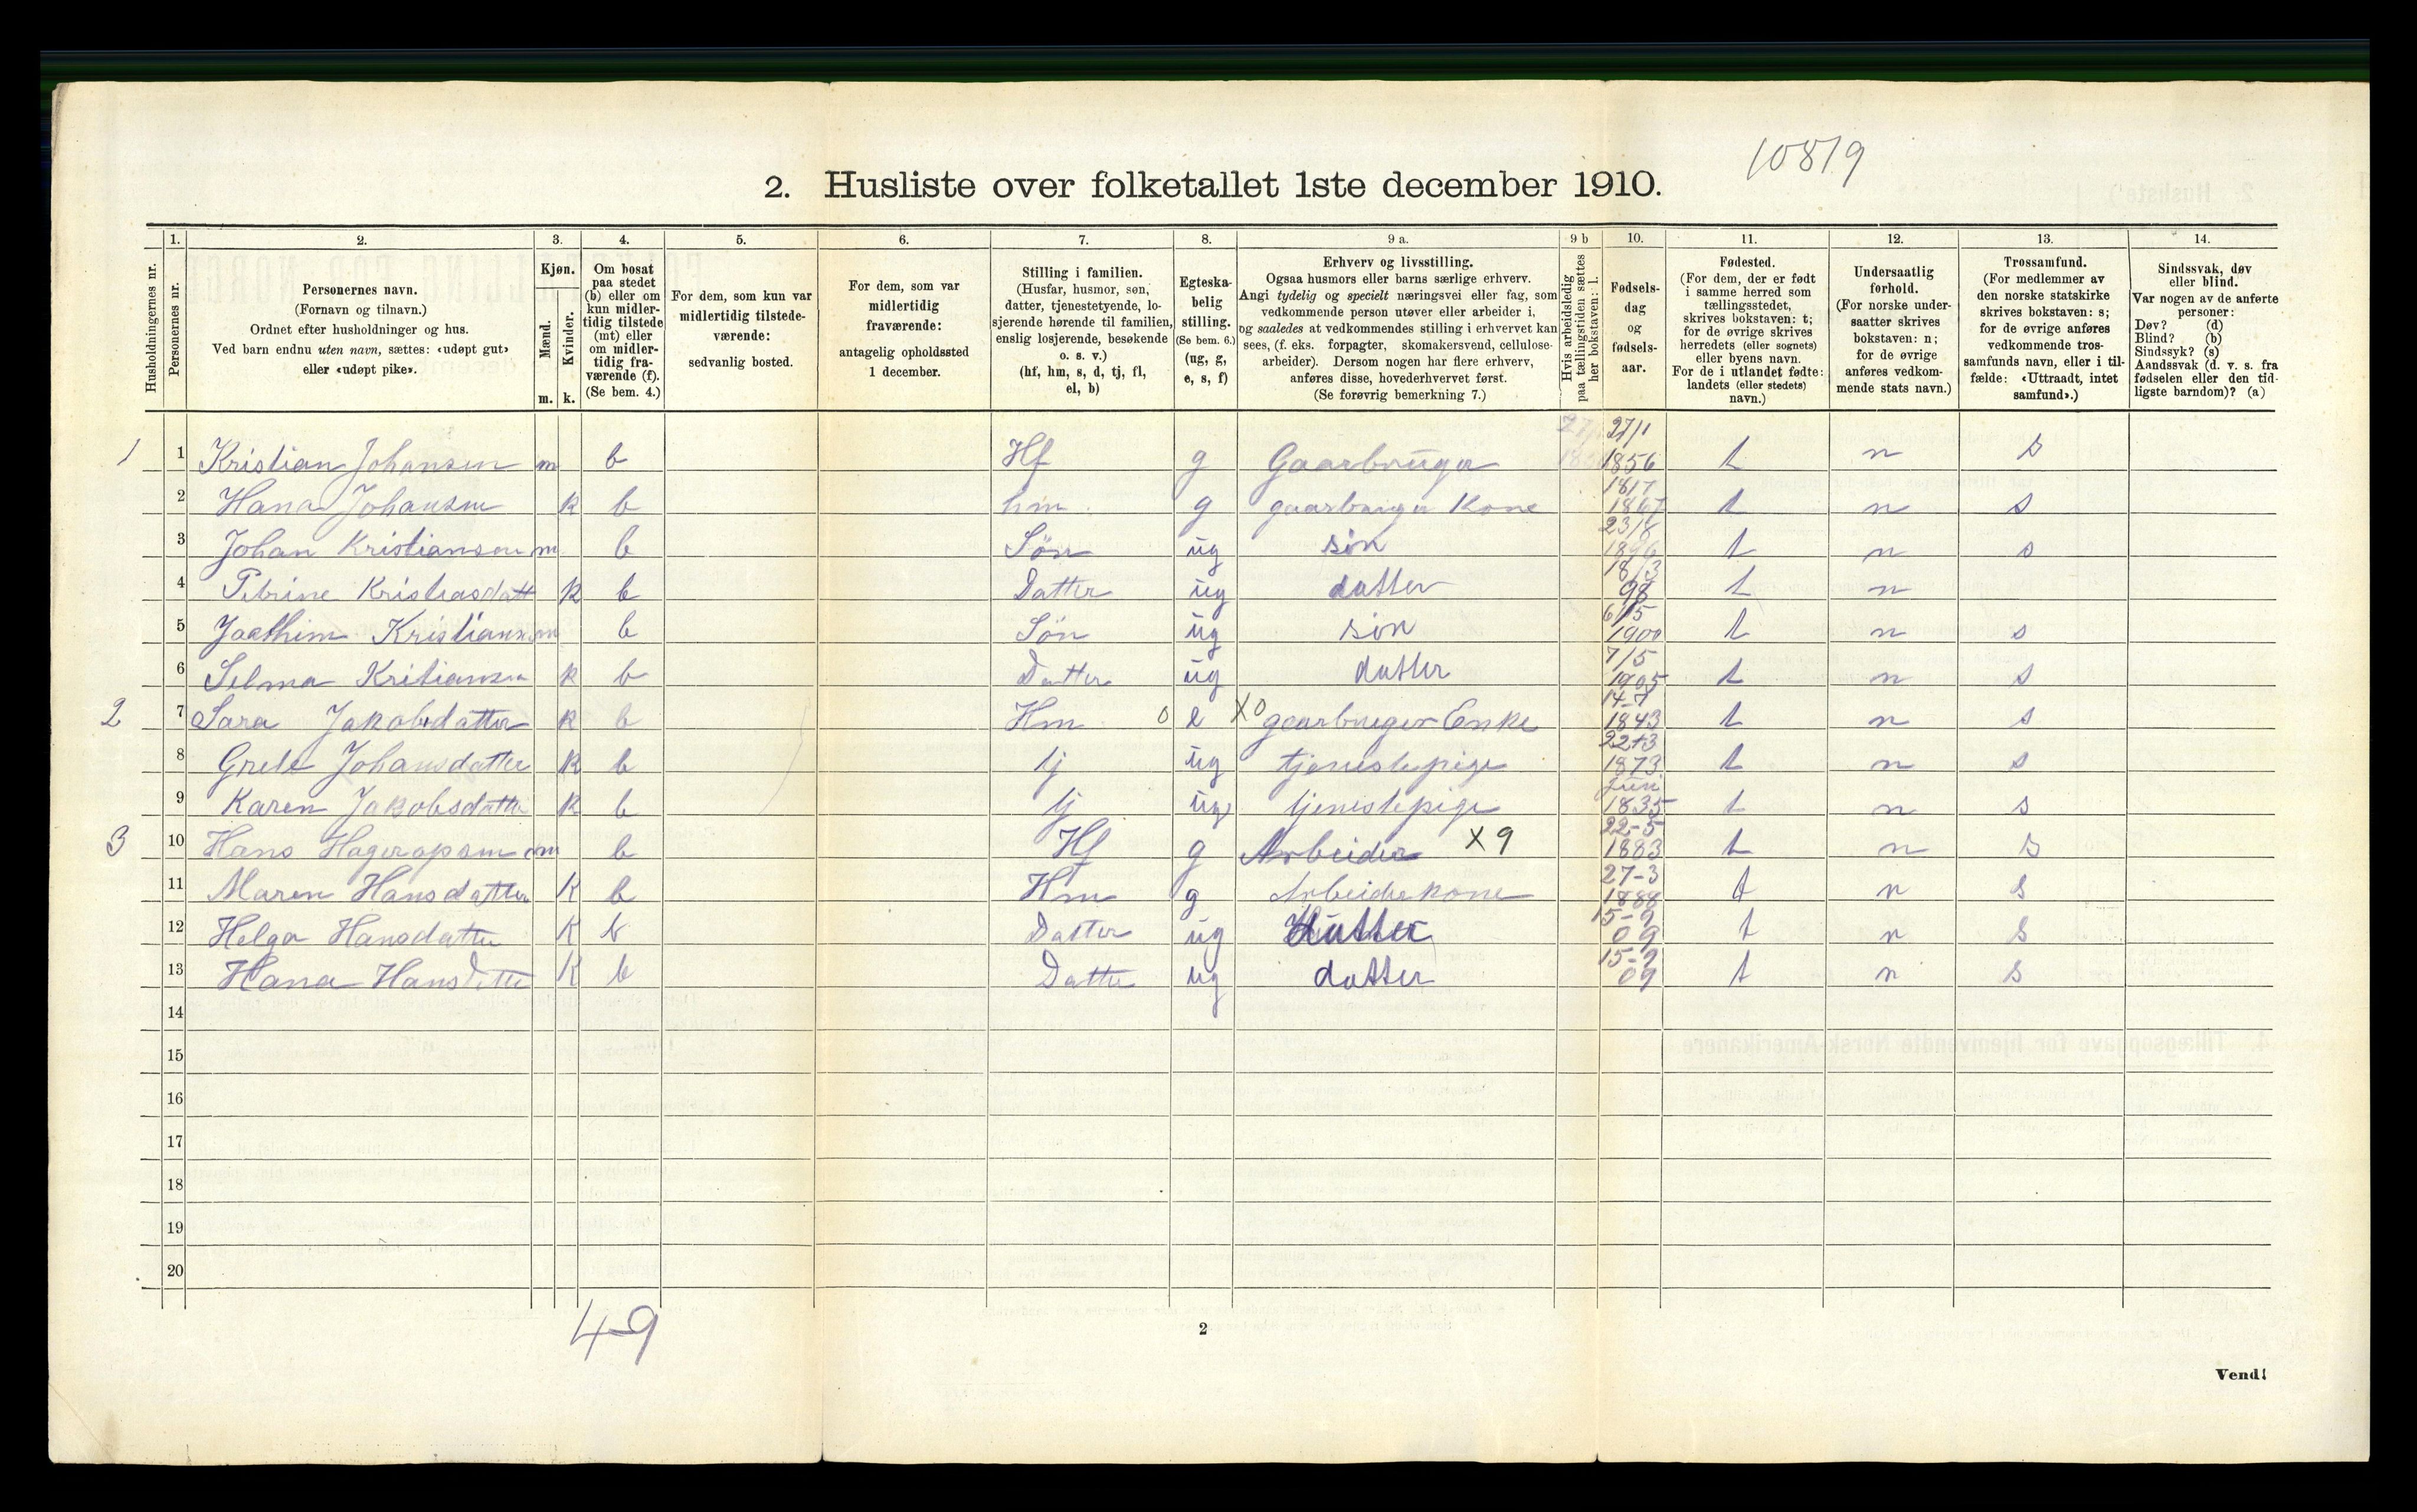 10819
2. Husliste over folketallet 1ste december 1910.
1. 2. 3. 4. 5. 6. 7. 8. 9 a. 9 b 10. 11. 12. 13. 14.
Husholdningernes nr.
Personernes nr.
Personernes navn.
(Fornavn og tilnavn.)
Ordnet efter husholdninger og hus.
Ved barn endnu uten navn, sættes: «udøpt gut»
eller «udøpt pike».
Kjøn.
Mænd.
Kvinder.
m. k.
Om bosat
paa stedet
(b) eller om
kun midler-
tidig tilstede
(mt) eller
om midler-
tidig fra-
værende (f).
(Se bem. 4.)
For dem, som kun var
midlertidig tilstede-
værende:
sedvanlig bosted.
For dem, som var
midlertidig
fraværende:
antagelig opholdssted
1 december.
Stilling i familien.
(Husfar, husmor, søn,
datter, tjenestetyende, lo-
sjerende hørende til familien,
enslig losjerende, besøkende
o. s. v.)
(hf, hm, s, d, tj, fl,
el, b)
Egteska-
belig
stilling.
(Se bem. 6.)
(ug, g,
e, s, f)
Erhverv og livsstilling.
Ogsaa husmors eller barns særlige erhverv.
Angi tydelig og specielt næringsvei eller fag, som
vedkommende person utøver eller arbeider i,
og saaledes at vedkommendes stilling i erhvervet kan
sees, (f. eks. forpagter, skomakersvend, cellulose-
arbeider). Dersom nogen har flere erhverv,
anføres disse, hovederhvervet først.
(Se forøvrig bemerkning 7.)
Hvis arbeidsledig
paa tællingstiden sættes
her bokstaven: l.
Fødsels-
dag
og
fødsels-
aar.
Fødested.
(For dem, der er født
i samme herred som
tællingsstedet,
skrives bokstaven: t;
for de øvrige skrives
herredets (eller sognets)
eller byens navn.
For de i utlandet fødte:
landets (eller stedets)
navn.)
Undersaatlig
forhold.
(For norske under-
saatter skrives
bokstaven: n;
for de øvrige
anføres vedkom-
mende stats navn.)
Trossamfund.
(For medlemmer av
den norske statskirke
skrives bokstaven: s;
for de øvrige anføres
vedkommende tros-
samfunds navn, eller i til-
fælde: «Uttraadt, intet
samfund».)
Sindssvak, døv
eller blind.
Var nogen av de anførte
personer:
Døv? (d)
Blind? (b)
Sindssyk? (s)
Aandssvak (d. v. s. fra
fødselen eller den tid-
ligste barndom)? (a)
1 1 Kristian Johansen m b Hf g Gaarbruger 27/1 1856 t n s
2 Hana Johansen k b hm g gaarbruger Kone 18/7 1867 t n s
3 Johan Kristiansen m b Sön ug sön 23/8 1896 t n s
4 Petrine Kristiasdatt k b Datter ug datter 18/3 98 t n
5 Joathim Kristiansen m b Sön ug sön 6/5 1900 t n s
6 Selma Kritiansen k b Datter ug datter 7/5 1905 t n s
2 7 Sara Jakobsdatter k b Hm 0 e X0 gaarbruger Enke 14-7 1843 t n s
8 Grete Johansdatter k b tj ug tjenestepige 22+3 1873 t n s
9 Karen Jakobsdatter k b tj ug tjenestepige Juni 1835 t n s
3 10 Hans m b Hf g Arbeider X9 22-5 1883 t n s
11 Maren Hansdatter K b Hm g Arbeiderkone 27-3 1888 t n s
12 Helga Hansdatter K b Datter ug datter 15-9 09 t n s
13 Hana Hansdatter K b Datter ug datter 15-9 09 t n s
14
15
16
17
18
19
20
49
2
Vend!